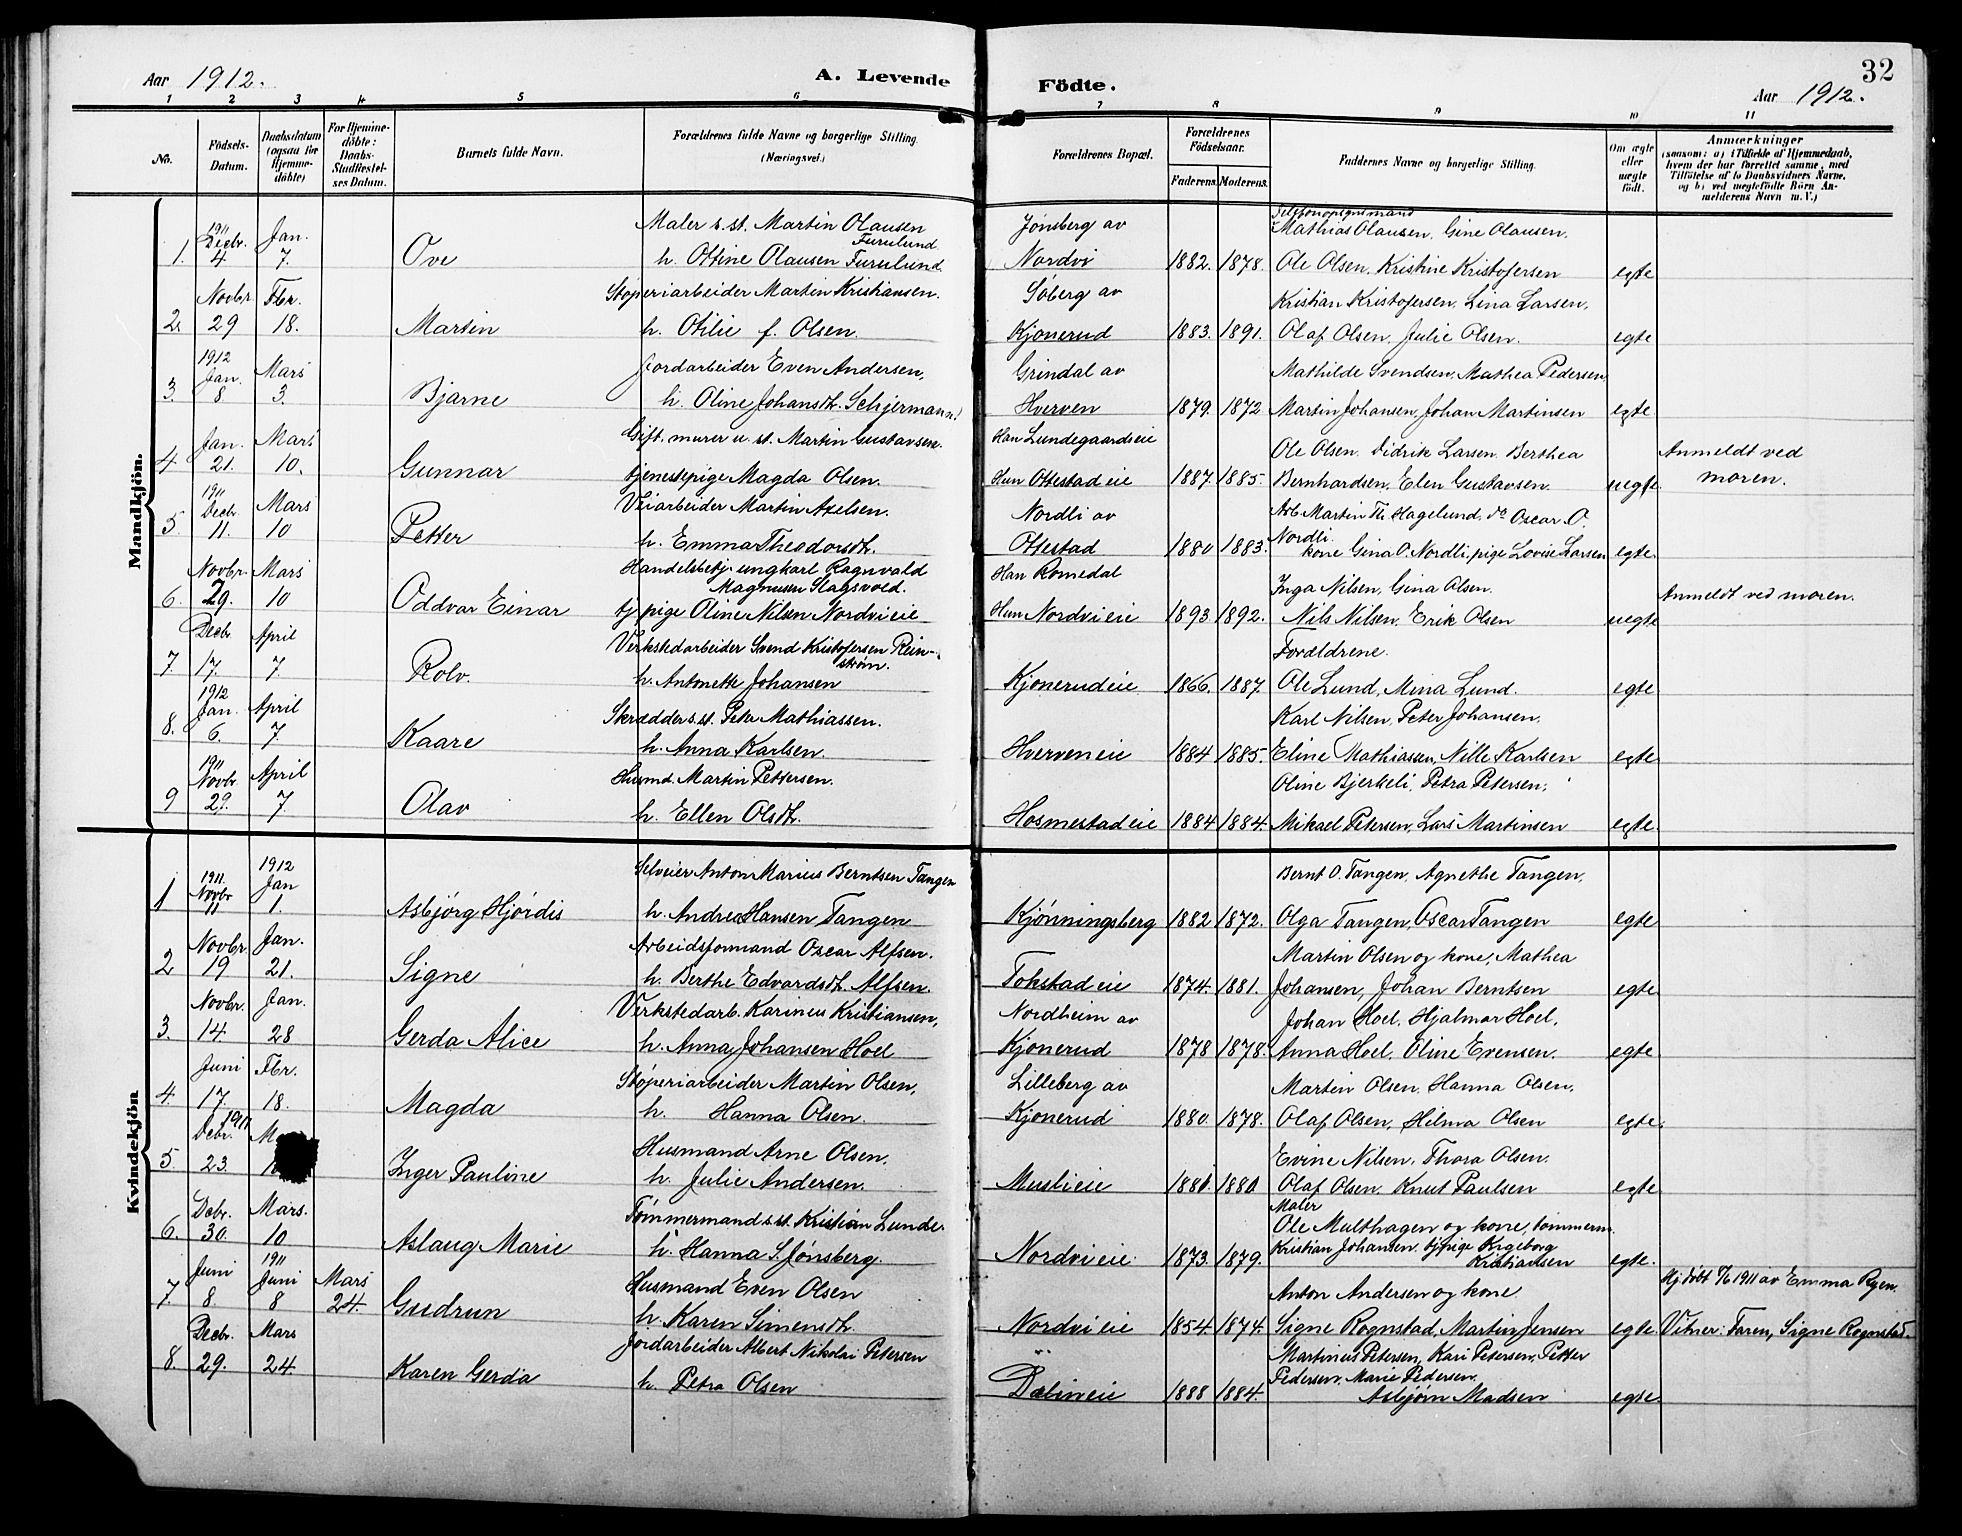 Aar 1912.
A. Levende
Födte.
32
Aar 1912.
1 2 3 4 5 6 7 8 9 10 11
No.
Födsels-
Datum.
Daabsdatum
(ogsaa for
Hjemme-
döbte)
For Hjemme-
döbte:
Daabs-
Stadfæstel-
ses Datum.
Barnets fulde Navn.
Forældrenes fulde Navne og borgerlige Stilling.
(Næringsvei.)
Forældrenes Bopæl.
Forældrenes
Födselsaar.
Faderens. Moderens.
Faddernes Navne og borgerlige Stilling.
Om ægte
eller
uægte
födt.
Anmærkninger
(saasom: a) i Tilfælde af Hjemmedaab,
hvem der har forrettet samme, med
Tilföielse af to Daabsvidners Navne,
og b) ved uægtefödte Börn An-
melderens Navn m. V.)
Mandkjön.
1911 Maler s. st. Martin Olausen Jønsberg av Telefonopsynsmand
Decbr. Jan. Furulund Mathias Olausen, Gine Olausen.
1. 4 7. Ove h. Oltine Olausen Furulund Nordvi 1882. 1878. Ole Olsen, Kristine Kristofersen egte
Novbr. Fbr. Støperiarbeider Martin Kristiansen. Søberg av Kristian Kristofersen, Lina Larsen,
2. 29 18. Martin h. Otilie f. Olsen. Kjonerud 1883. 1891. Olaf Olsen, Julie Olsen. egte
1912
Jan. Mars Jordarbeider Even Andersen, Grindal av Mathilde Svendsen, Mathea Pedersen,
3 8 3. Bjarne h. Oline Johansdt. Schjermann. Hverven 1879. 1872 Martin Johansen, Johan Martinsen egte
Jan. Mars Gift. murer u. st. Martin Gustavsen. Han Lundegaardseie Ole Olsen. Didrik Larsen. Berthea Anmeldt ved
4 21. 10. Gunnar tjenestepige Magda Olsen. Hun Ottestadeie 1887. 1885. Bernhardsen, Elen Gustavsen uegte. moren.
1911
Decbr. Mars Veiarbeider Martin Axelsen. Nordli av Arb. Martin Th. Hagelund, do Oscar O.
5 11. 10 Petter h. Emma Theodorsdt. Ottestad 1880 1883. Nordli. kone Gina O. Nordli, pige Lovise Larsen egte.
Novbr. Mars Handelsbetj. ungkarl Ragnvald Han Romedal Inga Nilsen, Gina Olsen.
Magnusen Slagsvold. Anmeldt ved moren.
6. 29. 10 Oddvar Einar tj. pige Oline Nilsen Nordvieie Hun Nordvieie 1893 1892. Nils Nilsen, Erik Olsen uegte
Decbr April Verkstedarbeider Svend Kristofersen Rein- Forældrene.
strøm.
7 17. 7. Rolv. h. Antonette Johansen Kjonerudeie 1866. 1887. Ole Lund, Mina Lund. egte
1912
Jan. April Skrædder s. st. Peter Mathiassen. Karl Nilsen, Peter Johansen,
8. 6. 7 Kaare h. Anna Karlsen. Hverveneie 1884 1885. Eline Mathiassen, Nille Karlsen egte
1911
Novbr April Husmd. Martin Pettersen. Oline Bjerkeli, Petra Petersen,
9 29. 7. Olav h. Ellen Olsdt. Hosmestadeie 1884 1884. Mikael Petersen, Lars Martinsen egte.
Kvindekjön
1911. 1912 Selveier Anton Marius Berntsen Tangen Bernt O. Tangen, Agnethe Tangen,
Novbr Jan
1 11 1. Asbjørg Hjørdis h. Andrea Hansen Tangen Kjønningsberg 1882 1872. Olga Tangen, Oscar Tangen egte
Novbr. Jan. Arbeidsformand Oscar Alfsen. Martin Olsen og kone, Mathea
2 19 21. Signe h. Berthe Edvardsdt. Alfsen. Tokstadeie 1874. 1881. Johansen, Johan Berntsen egte
Novbr. Jan. Verkstedarb. Karinius Kristiansen, Nordheim av Johan Hoel, Hjalmar Hoel,
3. 14. 28 Gerda Alice h. Anna Johansen Hoel Kjonerud 1878 1878. Anna Hoel, Oline Evensen. egte
Juni Fbr. Støperiarbeider Martin Olsen, Lilleberg av Martin Olsen, Hanna Olsen,
4. 17. 18. Magda h. Hanna Olsen. Kjonerud 1880. 1878. Olaf Olsen, Helma Olsen egte.
Decbr. 1911 M Husmand Arne Olsen. Evine Nilsen, Thora Olsen.
5 23. 1 Inger Pauline h. Julie Andersen. Muslieie 1881 1880 Olaf Olsen. Knut Paulsen egte
Decbr. Mars. Tømmermand s. st. Kristian Lunde. Maler
Ole Multhagen og kone, tømmerm.
6. 30. 10 Aslaug Marie h. Hanna S. Jønsberg. Nordvieie. 1873. 1879. Kristian Johansen, tj. pige Ingeborg Kristiansen egte.
Juni 1911 Juni Mars Husmand Even Olsen Anton Andersen og kone Hj. døbt 8/6 1911 av Emma Ryen.
7. 8. 8 24. Gudrun h. Karen Simensdt. Nordvieie 1854. 1874. Signe Rognstad, Martin Jensen egte Vitner: Faren, Signe Rognstad.
Decbr. Mars Jordarbeider Albert Nikolai Petersen Martinius Petersen, Kari Petersen, Petter
8. 29. 24. Karen Gerda h. Petra Olsen Dælineie 1888 1884. Pedersen, Marie Pedersen, Asbjørn Madsen egte.